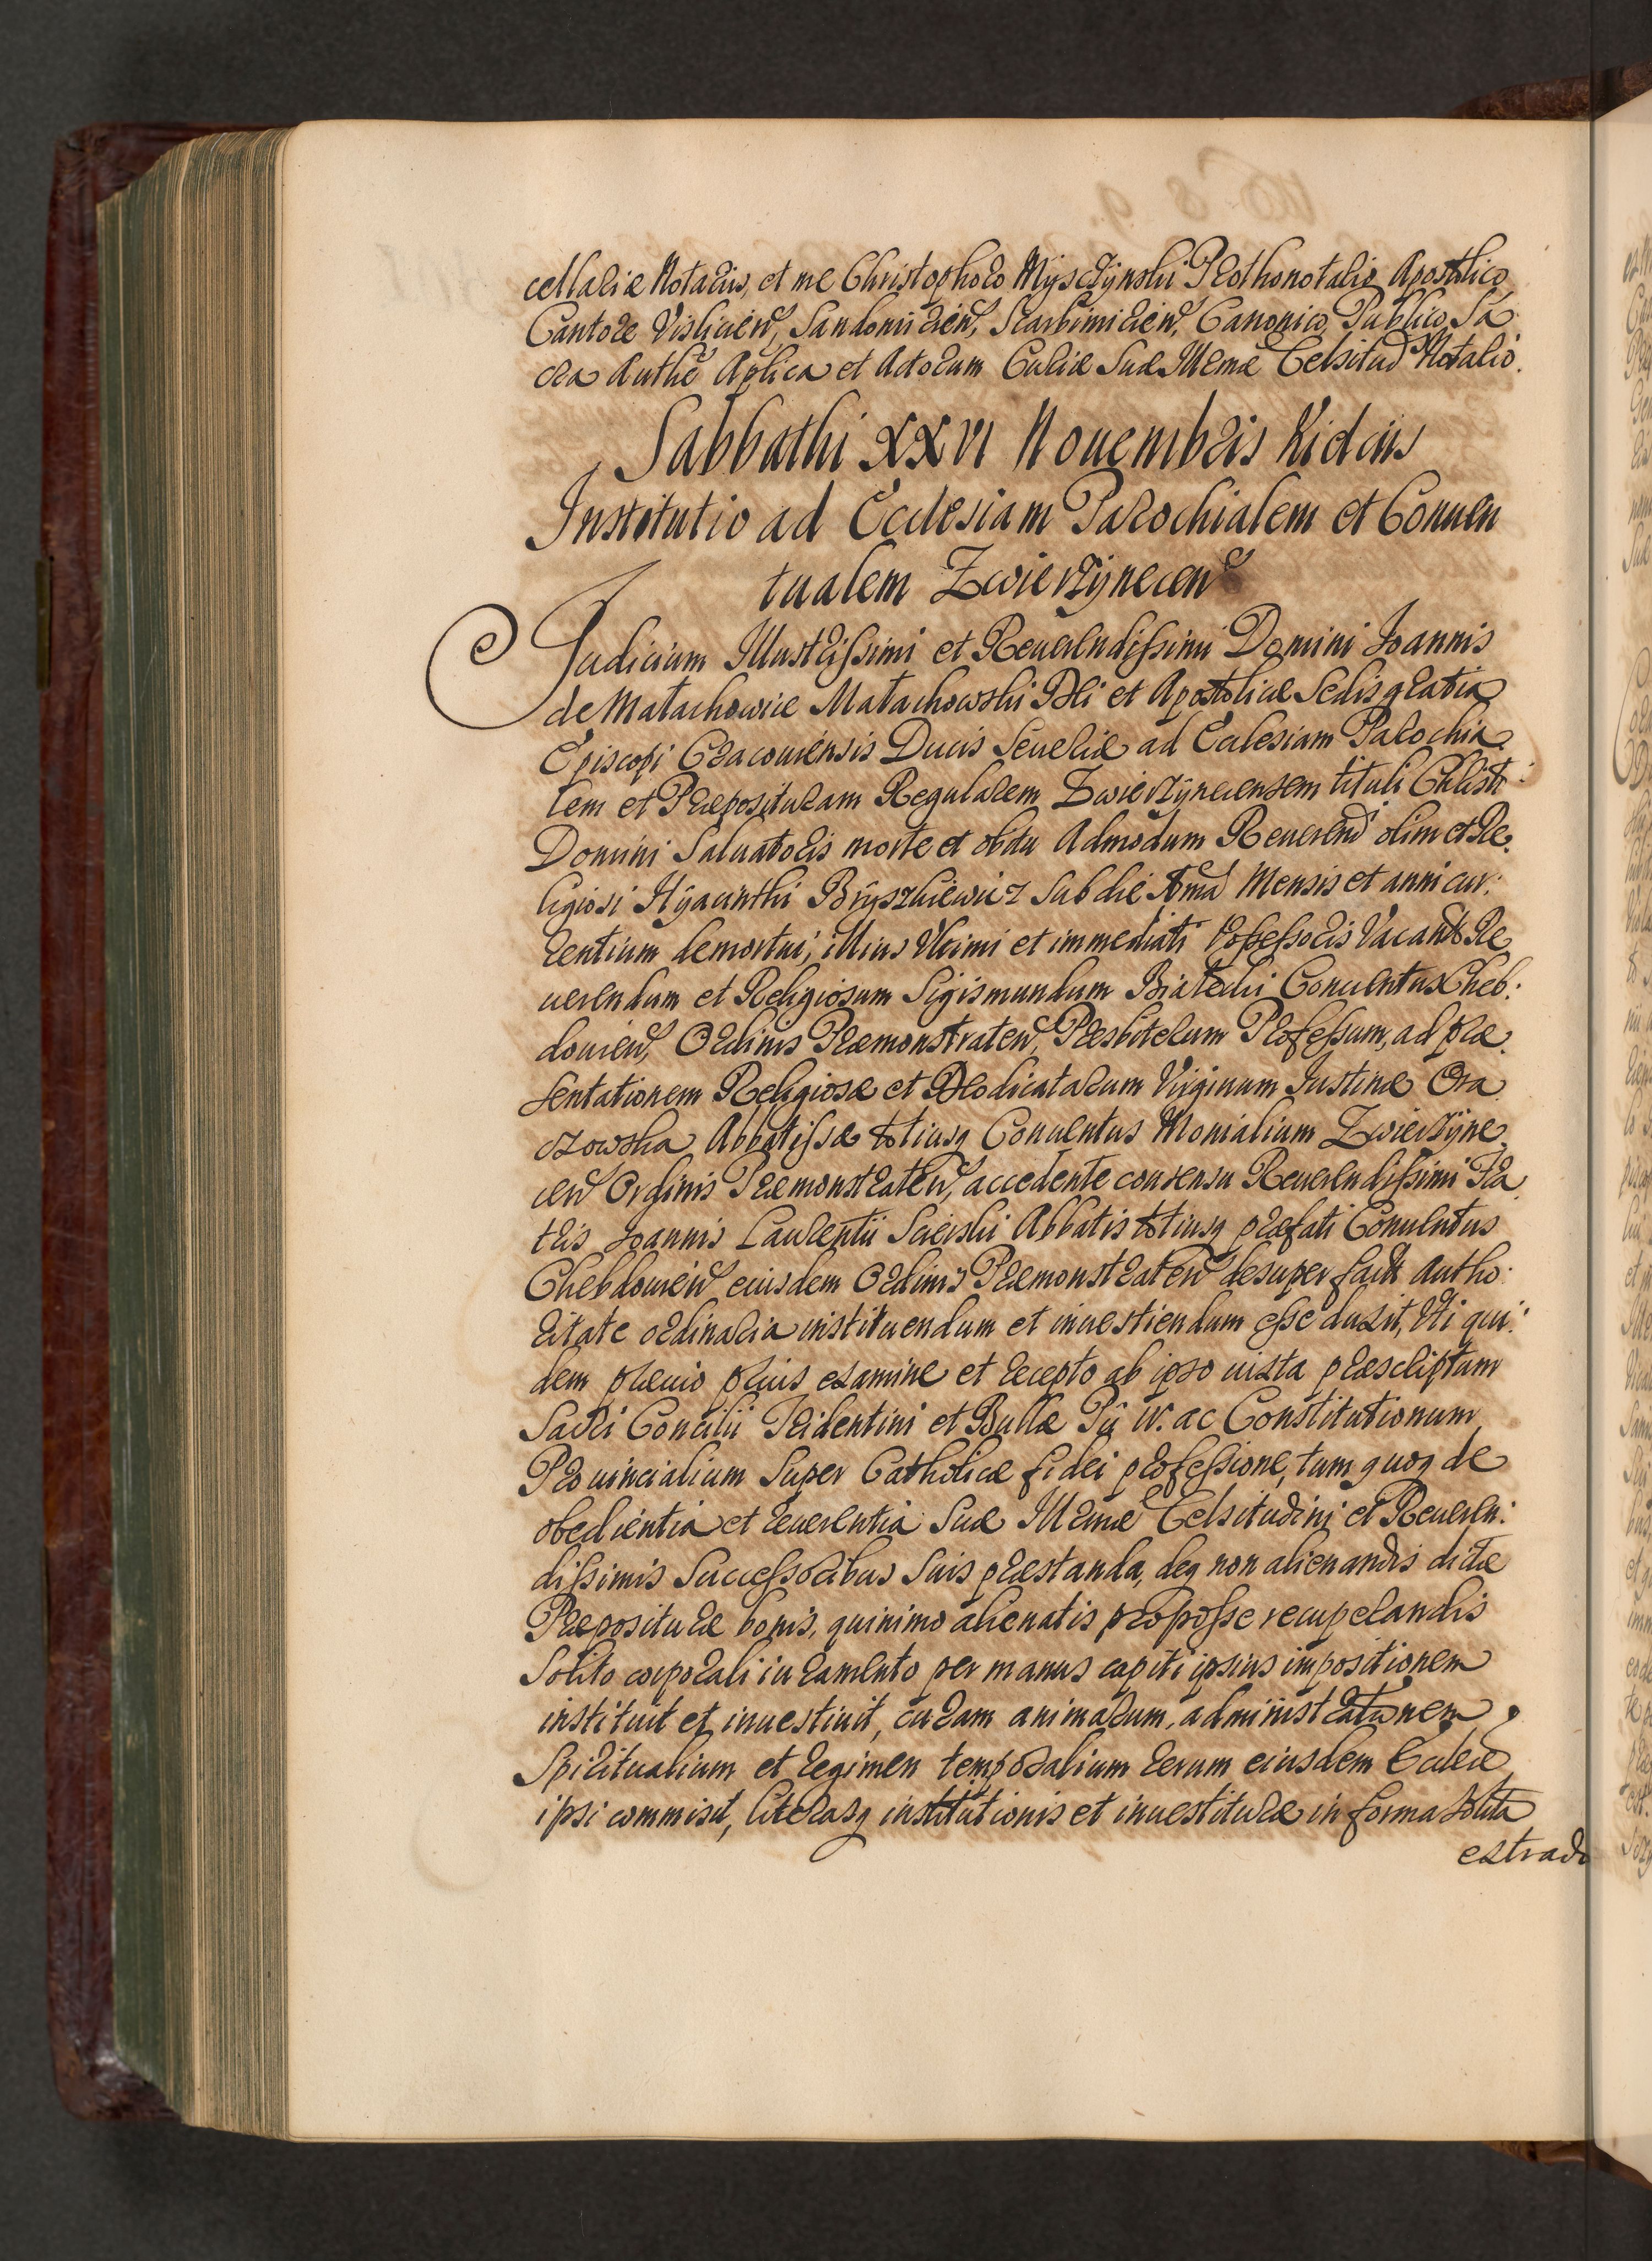 cellariæ Notarius, et me Christophoro Mysczÿnski Prothonotario Apostlico,
Cantore Vislicieñ, Sandomirieñ, Scarbimirieñ, Canonico, Publico Sa
cra Autħe Aplica et Actorum Curiæ Suæ Illmæ Celsitud Notario.
Sabbathi XXVI Nouembris
Institutio ad Ecclesiam Parochialem et Conuen
tualem Zwierzÿnecen
Judicium Illustrissimi et Reuerendissimi Domini Joannis
de Małachowice Małachowski Dei et Apostolicæ Sedis gratia
Episcopi Cracouiensis Ducis Seueriæ ad Ecclesiam Parochia
lem et Præposituram Regularem Zwierzÿnecensem tituli Christi
Domini Saluatoris morte et obitu Admodum Reuerend olim et Re
ligiosi Hÿacinthi Brÿszkiewicz sub die Mensis et anni cur:
rentium demortui, illius Vltimi et immediati Possessoris Vacant Re
uerendum et Religiosum Sigismundum Białecki Conuentus Cheb:
douieñ, Ordinis Præmonstrateñ, Presbiterum Professum, ad præ
sentationem Religiosæ et Deo dicatarum Virginum Justinæ Ora
czowska Abbatissæ totiusq Conuentus Monialium Zwierzÿne
ceñ Ordinis Præmonstrateñ, accedente consensu Reuerendissimi Fra
tris Joannis Laurentii Abbatis totiusq præfati Conuentus
Chebdouieñ eiusdem Ordinis Præmonstrateñ desuper fact autho
ritate ordinaria instituendum et inuestiendum esse duxit, Vti qui:
dem præuio prius examine et recepto ab ipso iuxta præscriptum
Sacri Concilii Tridentini et Bullæ Pii IV. ac Constitutionum
Prouincialium super Catholicæ fidei professione, tum quoq de
obedientia et reuerentia Suæ Illmæ Celsitudini et Reueren:
dissimis Successoribus Suis præstanda, deq non alienandis dictæ
Præpositure bonis, quinimo alienatis pro posse recuperandis
Solito corporali iuramento per manus capiti ipsius impositionem
instituit et inuestiuit, curam animarum, administrationem
Spiritualium et regimen temporalium rerum eiusdem Ecclæ
ipsi commisit, literasq institutionis et inuestituræ in forma solita
extradi